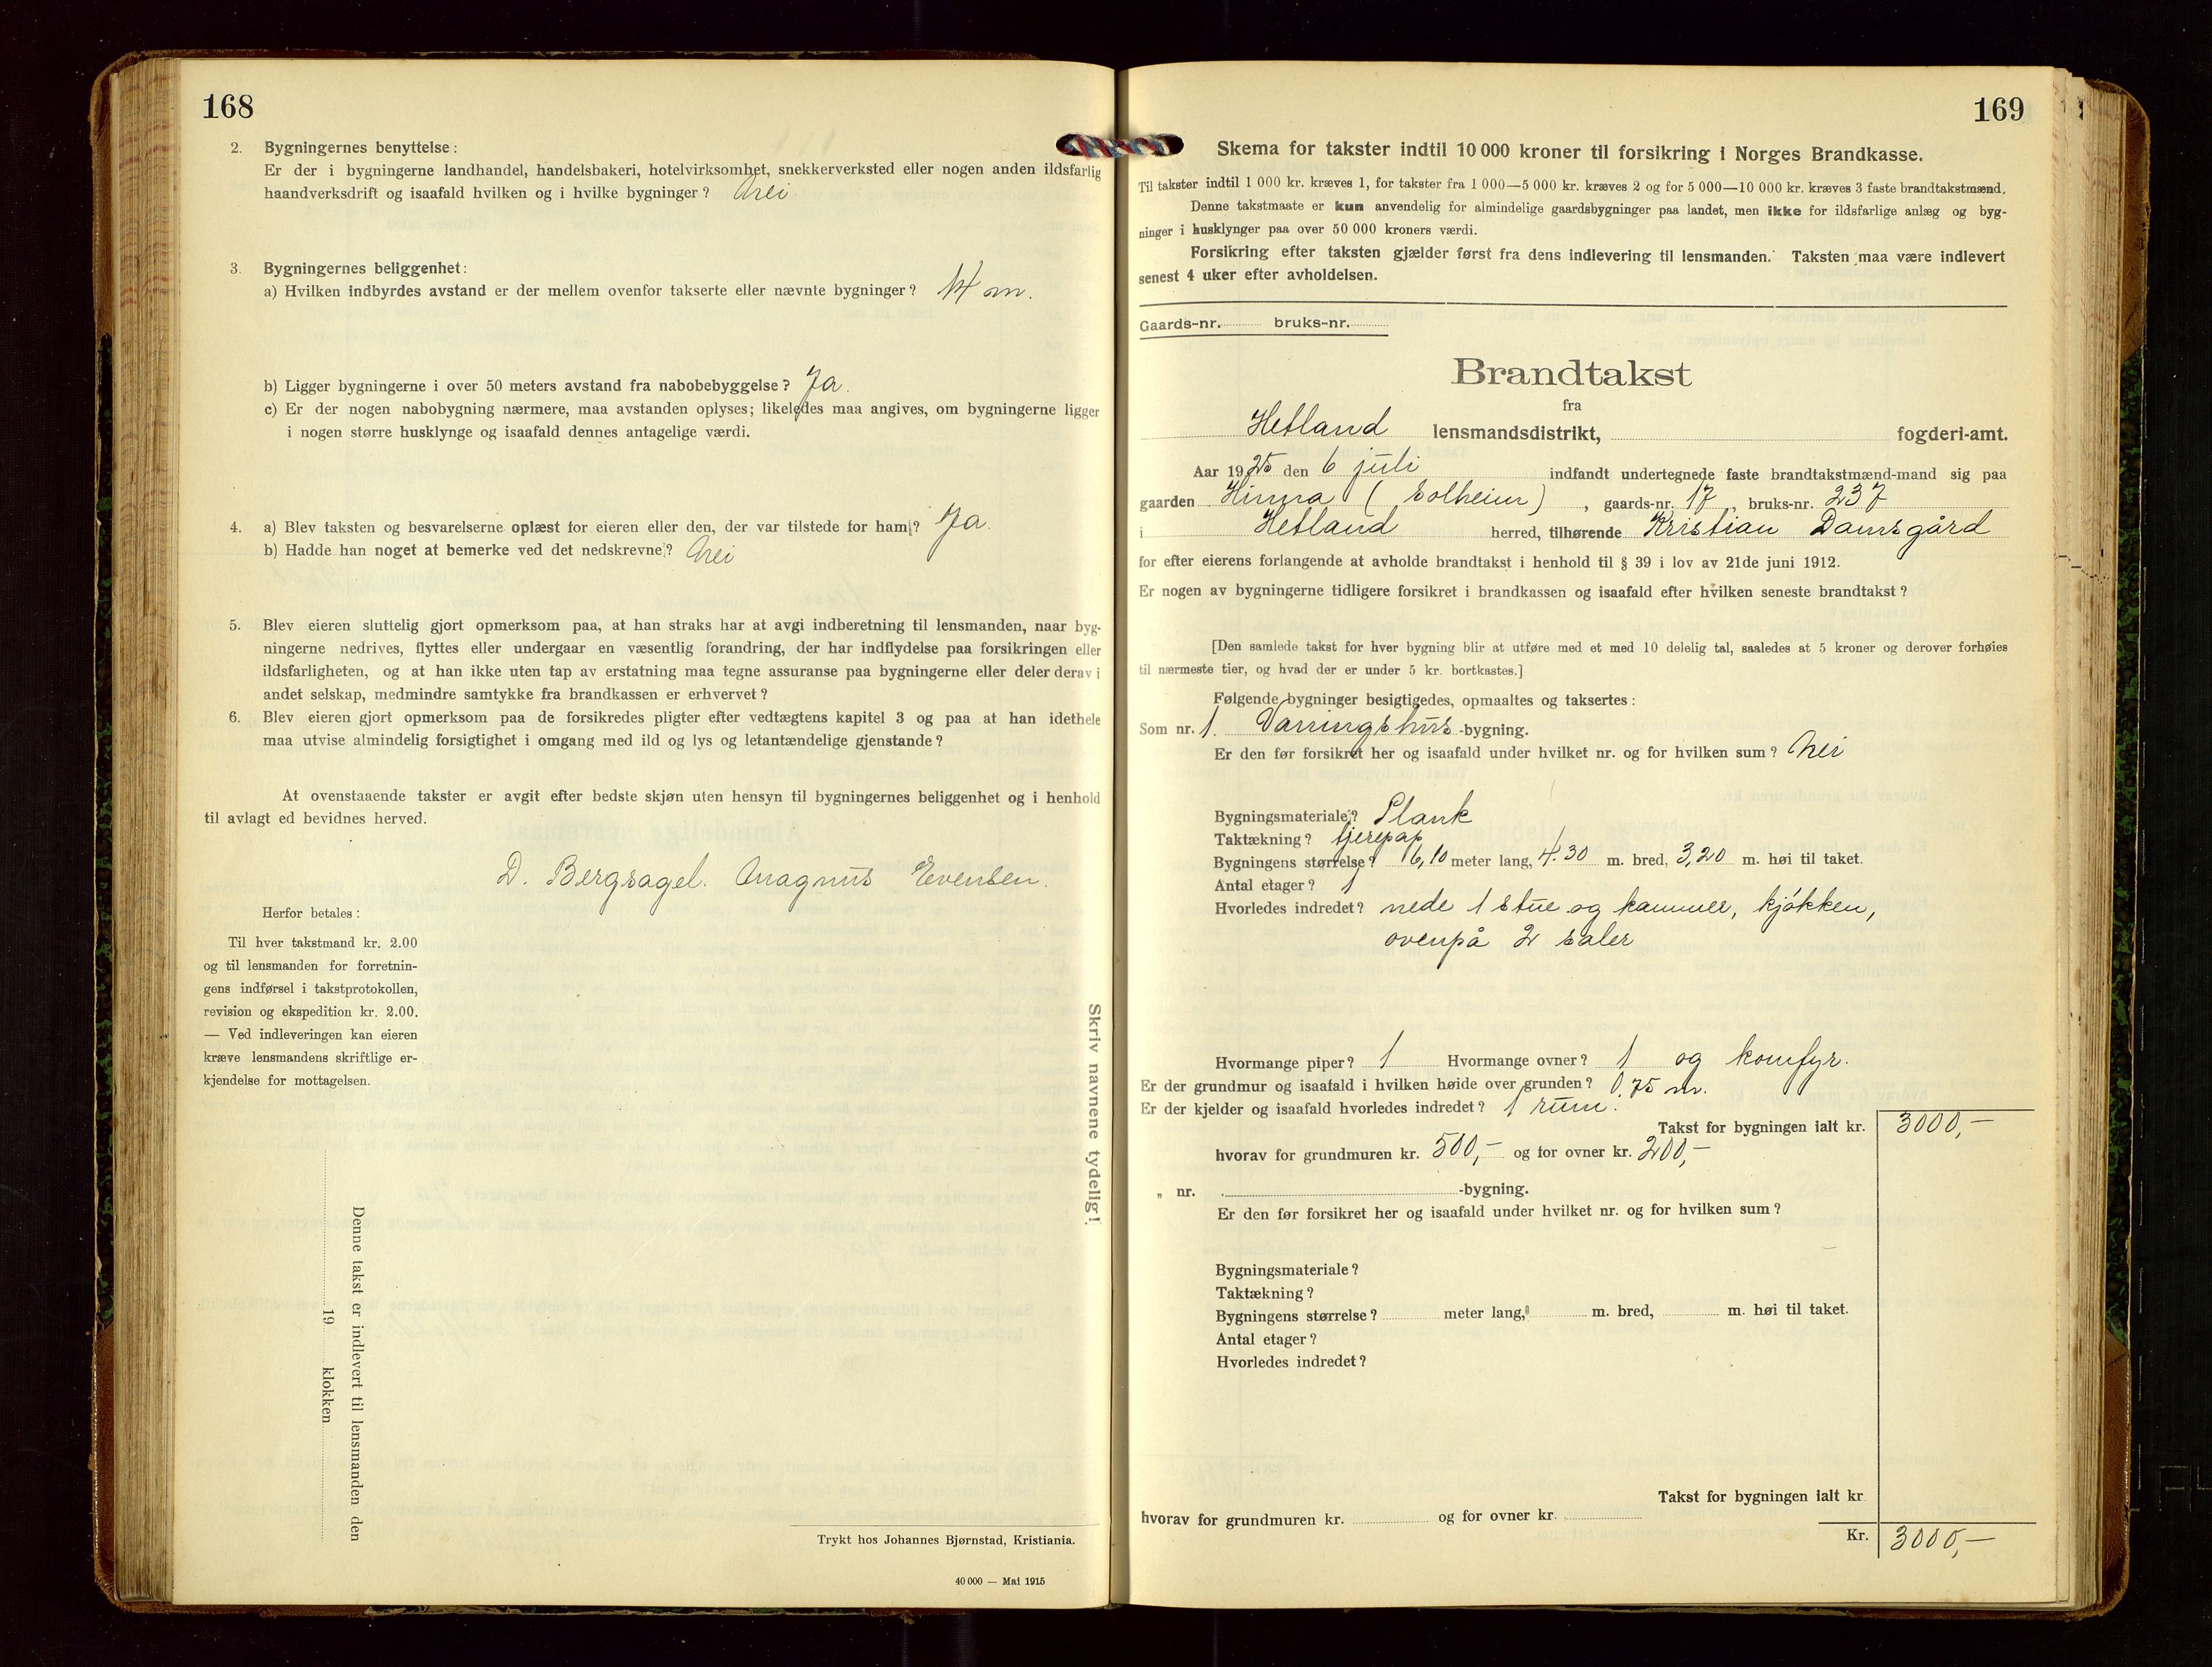 168
2. Bygningernes benyttelse:
Er der i bygningerne landhandel, handelsbakeri, hotelvirksomhet, snekkerverksted eller nogen anden ildsfarlig
haandverksdrift og isaafald hvilken og i hvilke bygninger? Nei
3. Bygningernes beliggenhet:
a) Hvilken indbyrdes avstand er der mellem ovenfor takserte eller nævnte bygninger? 14 m.
b) Ligger bygningerne i over 50 meters avstand fra nabobebyggelse? Ja.
c) Er der nogen nabobygning nærmere, maa avstanden oplyses; likeledes maa angives, om bygningerne ligger
i nogen større husklynge og isaafald dennes antagelige værdi.
4. a) Blev taksten og besvarelserne oplæst for eieren eller den, der var tilstede for ham? Ja.
b) Hadde han noget at bemerke ved det nedskrevne? Nei
5. Blev eieren sluttelig gjort opmerksom paa, at han straks har at avgi indberetning til lensmanden, naar byg-
ningerne nedrives, flyttes eller undergaar en væsentlig forandring, der har indflydelse paa forsikringen eller
ildsfarligheten, og at han ikke uten tap av erstatning maa tegne assuranse paa bygningerne eller deler derav i
andet selskap, medmindre samtykke fra brandkassen er erhvervet?
6. Blev eieren gjort opmerksom paa de forsikredes pligter efter vedtægtens kapitel 3 og paa at han idethele
maa utvise almindelig forsigtighet i omgang med ild og lys og letantændelige gjenstande?
At ovenstaaende takster er avgit efter bedste skjøn uten hensyn til bygningernes beliggenhet og i henhold
til avlagt ed bevidnes herved.
D. Bergsagel. Magnus Evensen.
Herfor betales:
Til hver takstmand kr. 2.00
og til lensmanden for forretnin-
gens indførsel i takstprotokollen,
revision og ekspedition kr. 2.00.
— Ved indleveringen kan eieren
kræve lensmandens skriftlige er-
kjendelse for mottagelsen.
Skriv navnene tydelig!
Denne takst er indlevert til lensmanden den
19 klokken
Trykt hos Johannes Bjørnstad, Kristiania.
40 000 — Mai 1915
169
Skema for takster indtil 10 000 kroner til forsikring i Norges Brandkasse.
Til takster indtil 1 000 kr. kræves 1, for takster fra 1 000—5 000 kr. kræves 2 og for 5 000—10 000 kr. kræves 3 faste brandtakstmænd.
Denne takstmaate er kun anvendelig for almindelige gaardsbygninger paa landet, men ikke for ildsfarlige anlæg og byg-
ninger i husklynger paa over 50 000 kroners værdi.
Forsikring efter taksten gjælder først fra dens indlevering til lensmanden. Taksten maa være indlevert
senest 4 uker efter avholdelsen.
Gaards-nr. bruks-nr.
Brandtakst
fra
Hetland lensmandsdistrikt, fogderi-amt.
Aar 1925 den 6 juli indfandt undertegnede faste brandtakstmænd-mand sig paa
gaarden Hinna (Solheim), gaards-nr. 17, bruks-nr. 237
i Hetland herred, tilhørende Kristian Damsgård
for efter eierens forlangende at avholde brandtakst i henhold til § 39 i lov av 21de juni 1912.
Er nogen av bygningerne tidligere forsikret i brandkassen og isaafald efter hvilken seneste brandtakst?
[Den samlede takst for hver bygning blir at utføre med et med 10 delelig tal, saaledes at 5 kroner og derover forhøies
til nærmeste tier, og hvad der er under 5 kr. bortkastes.]
Følgende bygninger besigtigedes, opmaaltes og taksertes:
Som nr. 1. Vaaningshus-bygning.
Er den før forsikret her og isaafald under hvilket nr. og for hvilken sum? Nei
Bygningsmateriale? Plank
Taktækning? tjerepap
Bygningens størrelse? 6,10 meter lang, 4.30 m. bred, 3,20 m. høi til taket.
Antal etager? 1
Hvorledes indredet? nede 1 stue og kammer, kjøkken,
ovenpå 2 saler
Hvormange piper? 1 Hvormange ovner? 1 og komfyr.
Er der grundmur og isaafald i hvilken høide over grunden? 0,75 m.
Er der kjelder og isaafald hvorledes indredet? 1 rum.
Takst for bygningen ialt kr. 3000,—
hvorav for grundmuren kr. 500,— og for ovner kr. 200,—
„ nr. -bygning.
Er den før forsikret her og isaafald under hvilket nr. og for hvilken sum?
Bygningsmateriale?
Taktækning?
Bygningens størrelse? meter lang, m. bred, m. høi til taket.
Antal etager?
Hvorledes indredet?
Takst for bygningen ialt kr
hvorav for grundmuren kr. og for ovner kr.
Kr. 3000,—